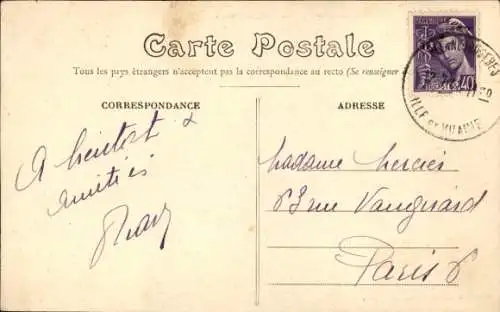 Carte Postale
Tous les pays étrangers n'acceptent pas la correspondance au recto (Se renseigner
CORRESPONDANCE
ADRESSE
A bientôt &
amitiés
Madame Mercier
63 rue Vaugirard
Paris 6
40
ILLE et VILAINE